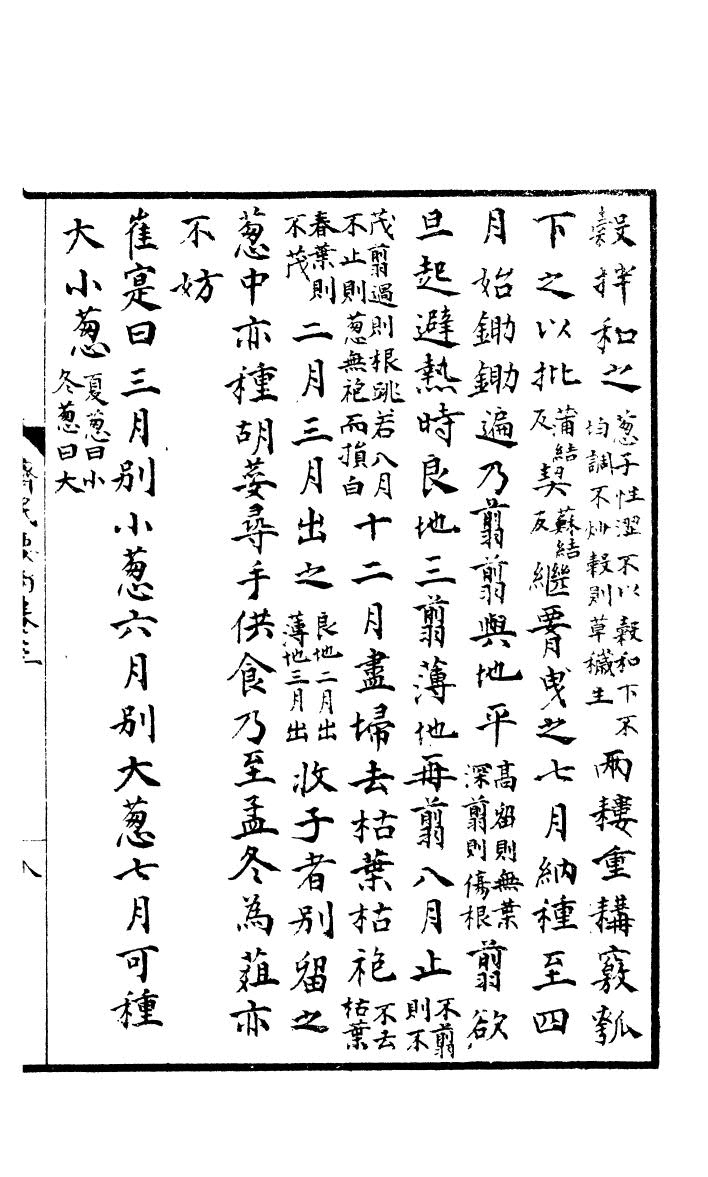 糓拌和之葱子性澀不以糓和下不均調不炒糓則草穢生兩耬重耩竅瓠
下之以批蒲結反契蘇結反繼𦝫曵之七月納種至四
月始鋤鋤遍乃翦翦與地平高留則無葉深翦則傷根翦欲
旦起避熱時良地三翦薄地再翦八月止不翦則不
茂翦過則根跳若八月不止則葱無袍而損白十二月盡埽去枯葉枯袍不去枯葉
春葉則不茂二月三月出之良地二月出薄地三月出收子者別留之
葱中亦種胡荽尋手供食乃至孟冬為葅亦
不妨
崔寔曰三月别小葱六月别大葱七月可種
大小葱夏葱曰小冬葱曰大
齊民要術卷三
八